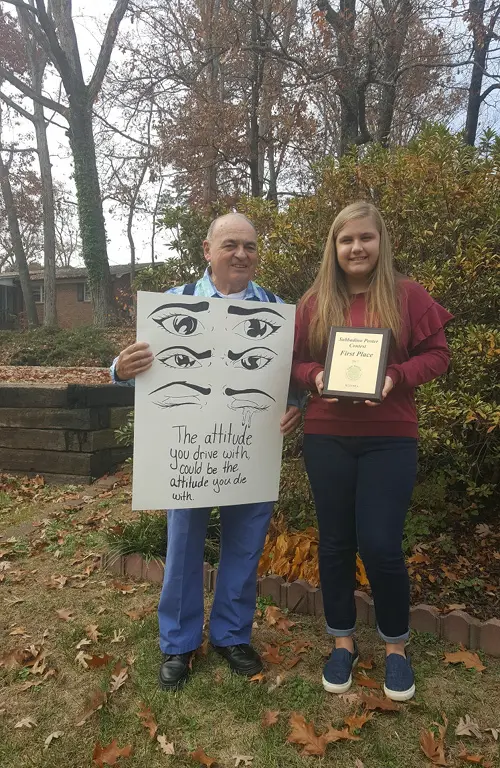 The attitude
you drive with,
could be the
attitude you die
with.
Poster
Contest
First Place